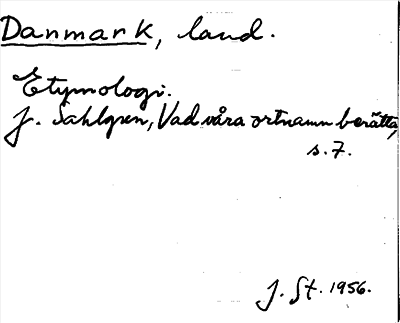 Danmark, land.
Etymologi.
J. Sahlgren, Vad våra ortnamn berätta,
s. 7.
J. St. 1956.